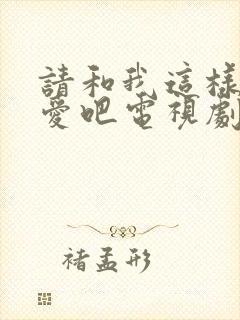 請和我這樣
愛吧電視劇
褚孟形